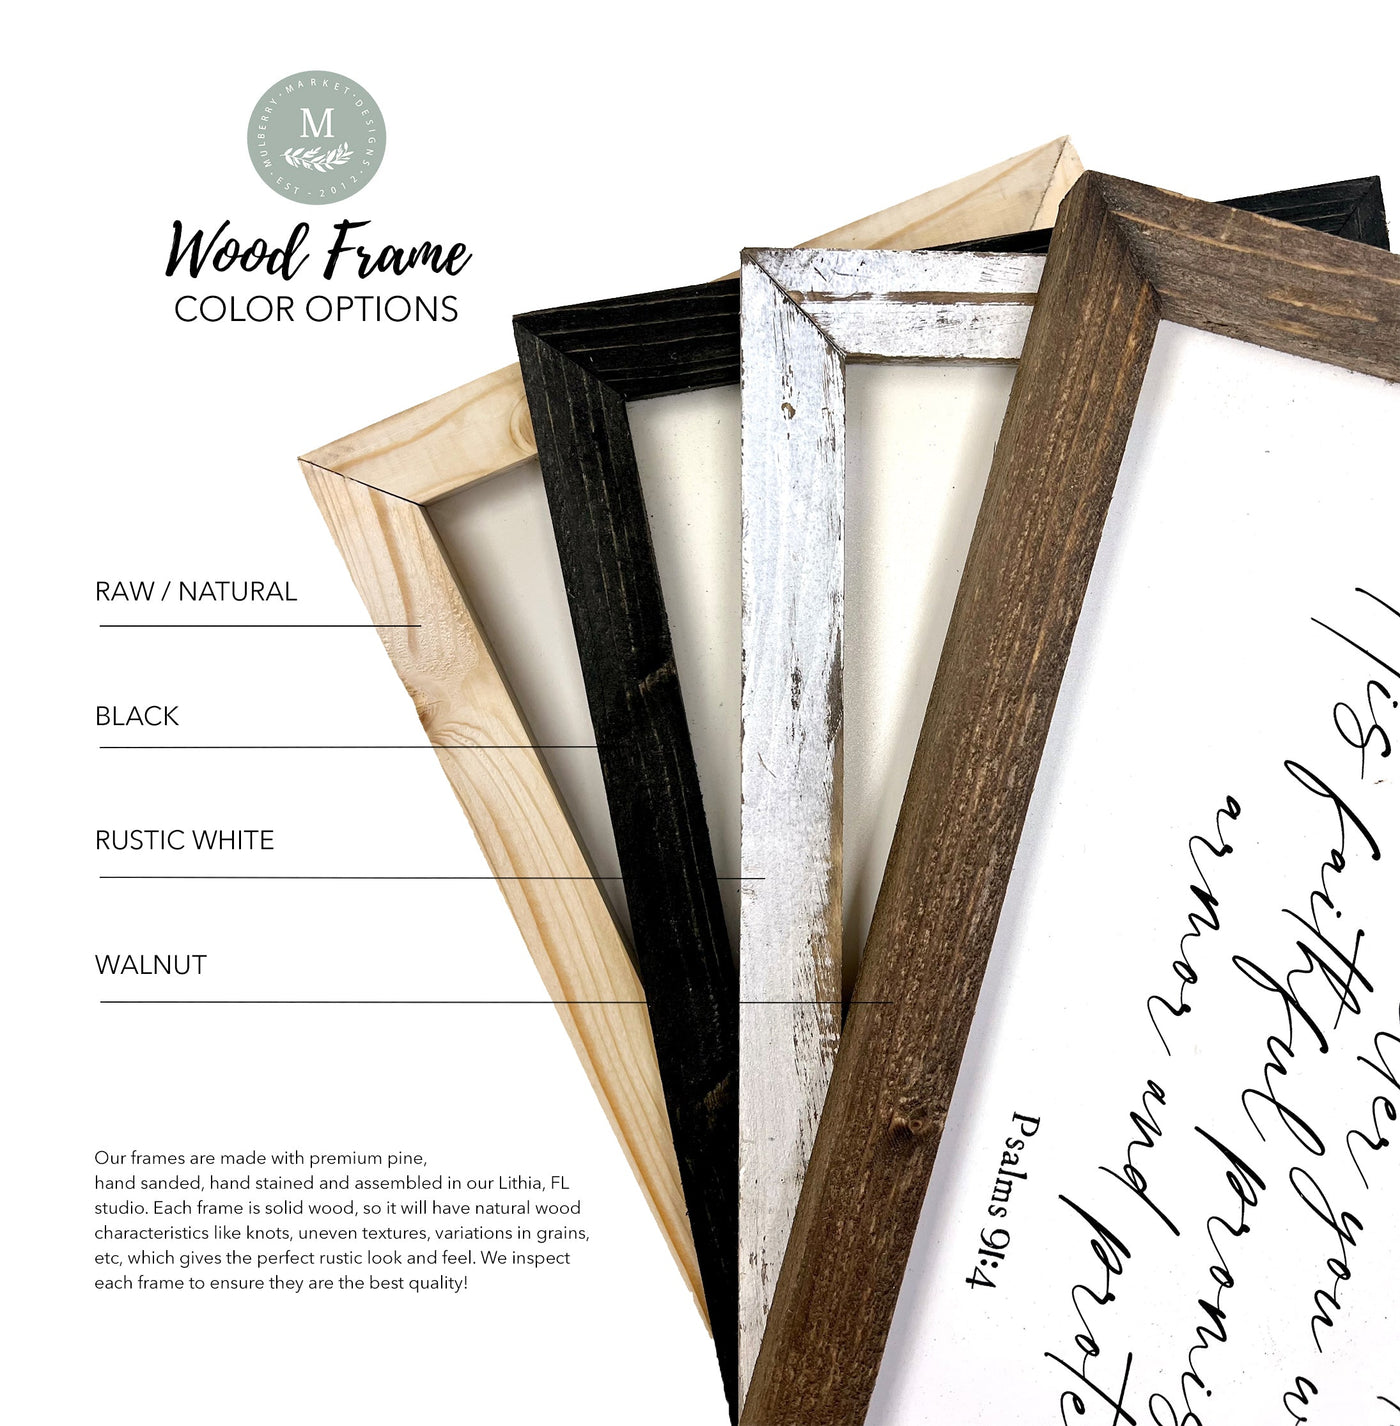 MULBERRY · MARKET · DESIGNS
M
· EST - 2012 ·
Wood Frame
COLOR OPTIONS
RAW / NATURAL
BLACK
RUSTIC WHITE
WALNUT
Our frames are made with premium pine,
hand sanded, hand stained and assembled in our Lithia, FL
studio. Each frame is solid wood, so it will have natural wood
characteristics like knots, uneven textures, variations in grains,
etc, which gives the perfect rustic look and feel. We inspect
each frame to ensure they are the best quality!
His faithful promi
armor and prote
Psalms 91:4